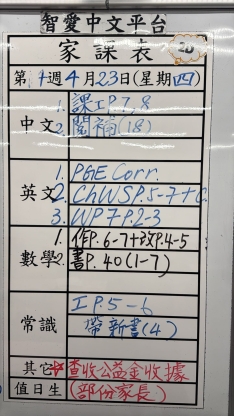 智愛中文平台
家課表 20
第1週4月23日(星期四)
中文
1. 課工P.7,8
2. 閱福(18)
英文
1. PGE Corr.
2. ChWSP.5-7+C.
3. WP7P.2-3
數學
1. 作P.6-7+改P.4-5
2. 書P.40(1-7)
常識
工P.5-6
帶新書(4)
其它 查收公益金收據
值日生 (部份家長)